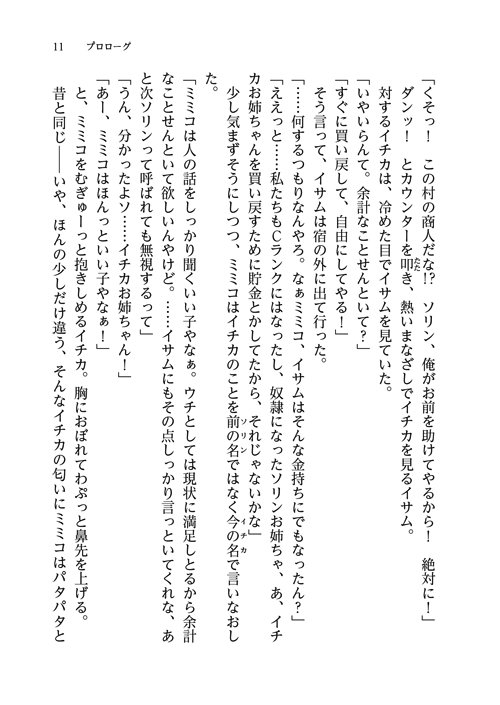 11　プロローグ
「くそっ！　この村の商人だな!?　ソリン、俺がお前を助けてやるから！　絶対に！」
ダンッ！　とカウンターを叩き、熱いまなざしでイチカを見るイサム。
対するイチカは、冷めた目でイサムを見ていた。
「いやいらんて。余計なことせんといて？」
「すぐに買い戻して、自由にしてやる！」
そう言って、イサムは宿の外に出て行った。
「……何するつもりなんやろ。なぁミミコ、イサムはそんな金持ちにでもなったん？」
「ええっと……私たちもCランクにはなったし、奴隷になったソリンお姉ちゃ、あ、イチ
カお姉ちゃんを買い戻すために貯金とかしてたから、それじゃないかな」
少し気まずそうにしつつ、ミミコはイチカのことを前の名ではなく今の名で言いなおし
た。
「ミミコは人の話をしっかり聞くいい子やなぁ。ウチとしては現状に満足しとるから余計
なことせんといて欲しいんやけど。……イサムにもその点しっかり言っといてくれな、あ
と次ソリンって呼ばれても無視するって」
「うん、分かったよソ……イチカお姉ちゃん！」
「あー、ミミコはほんっといい子やなぁ！」
と、ミミコをむぎゅーっと抱きしめるイチカ。胸におぼれてわぷっと鼻先を上げる。
昔と同じ――いや、ほんの少しだけ違う、そんなイチカの匂いにミミコはパタパタと